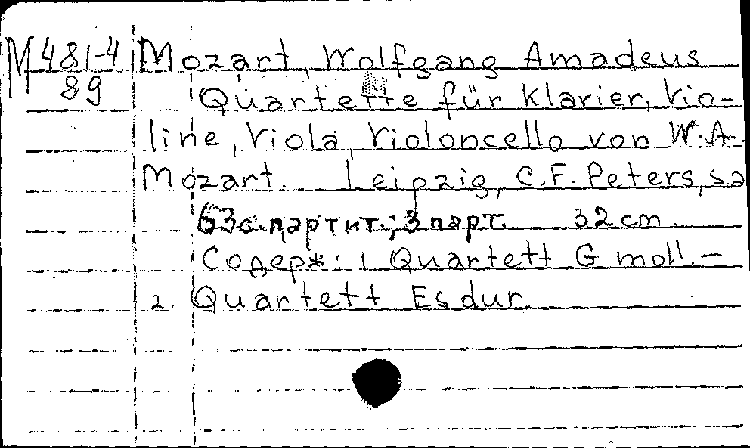 М 481-4 Mozart, Wolfgang Amadeus
89 Quartette für Klavier, Vio-
line, Viola, Violoncello von W.A.
Mozart. Leipzig, C.F. Peters, sa
63с. партит.; 3 парт. 32 cm.
Содерж.: 1 Quartett G moll. –
2. Quartett Es dur.